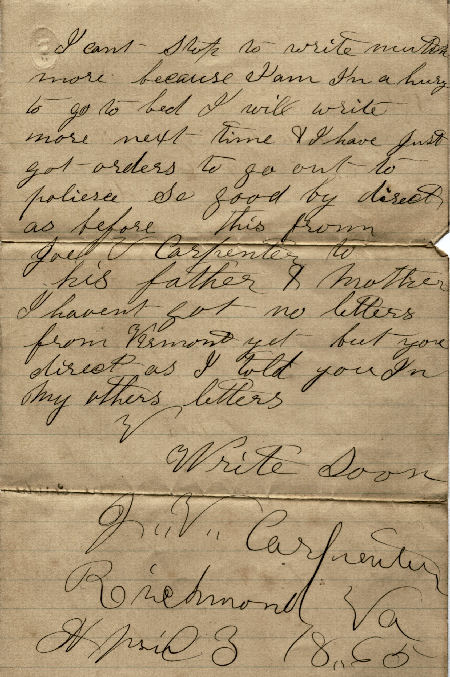 I cant stop to write mutch
more because I am In a hury
to go to bed I will write
more next time & I have just
got orders to go out to
poliece So good by direct
as before this from
Joel V Carpenter to
his father & Mother
I havent got no letters
from Vermont yet but you
direct as I told you In
My others letters
V
Write Soon
J,,V,, Carpenter
Richmond Va
April 3 18,,65